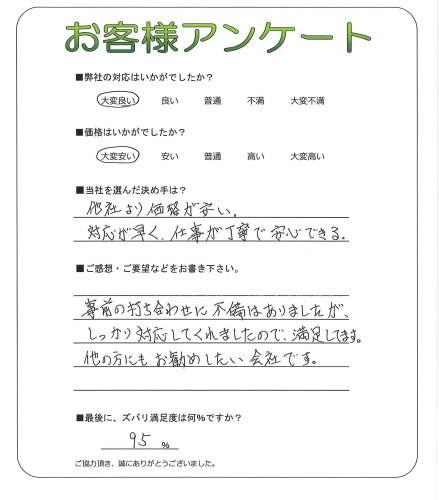 お客様アンケート
■弊社の対応はいかがでしたか？
大変良い 良い 普通 不満 大変不満
■価格はいかがでしたか？
大変安い 安い 普通 高い 大変高い
■当社を選んだ決め手は？
他社より価格が安い。
対応が早く、仕事が丁寧で安心できる。
■ご感想・ご要望などをお書き下さい。
事前の打ち合わせに不備はありましたが、
しっかり対応してくれましたので、満足してます。
他の方にもお勧めしたい会社です。
■最後に、ズバリ満足度は何％ですか？
95 ％
ご協力頂き、誠にありがとうございました。